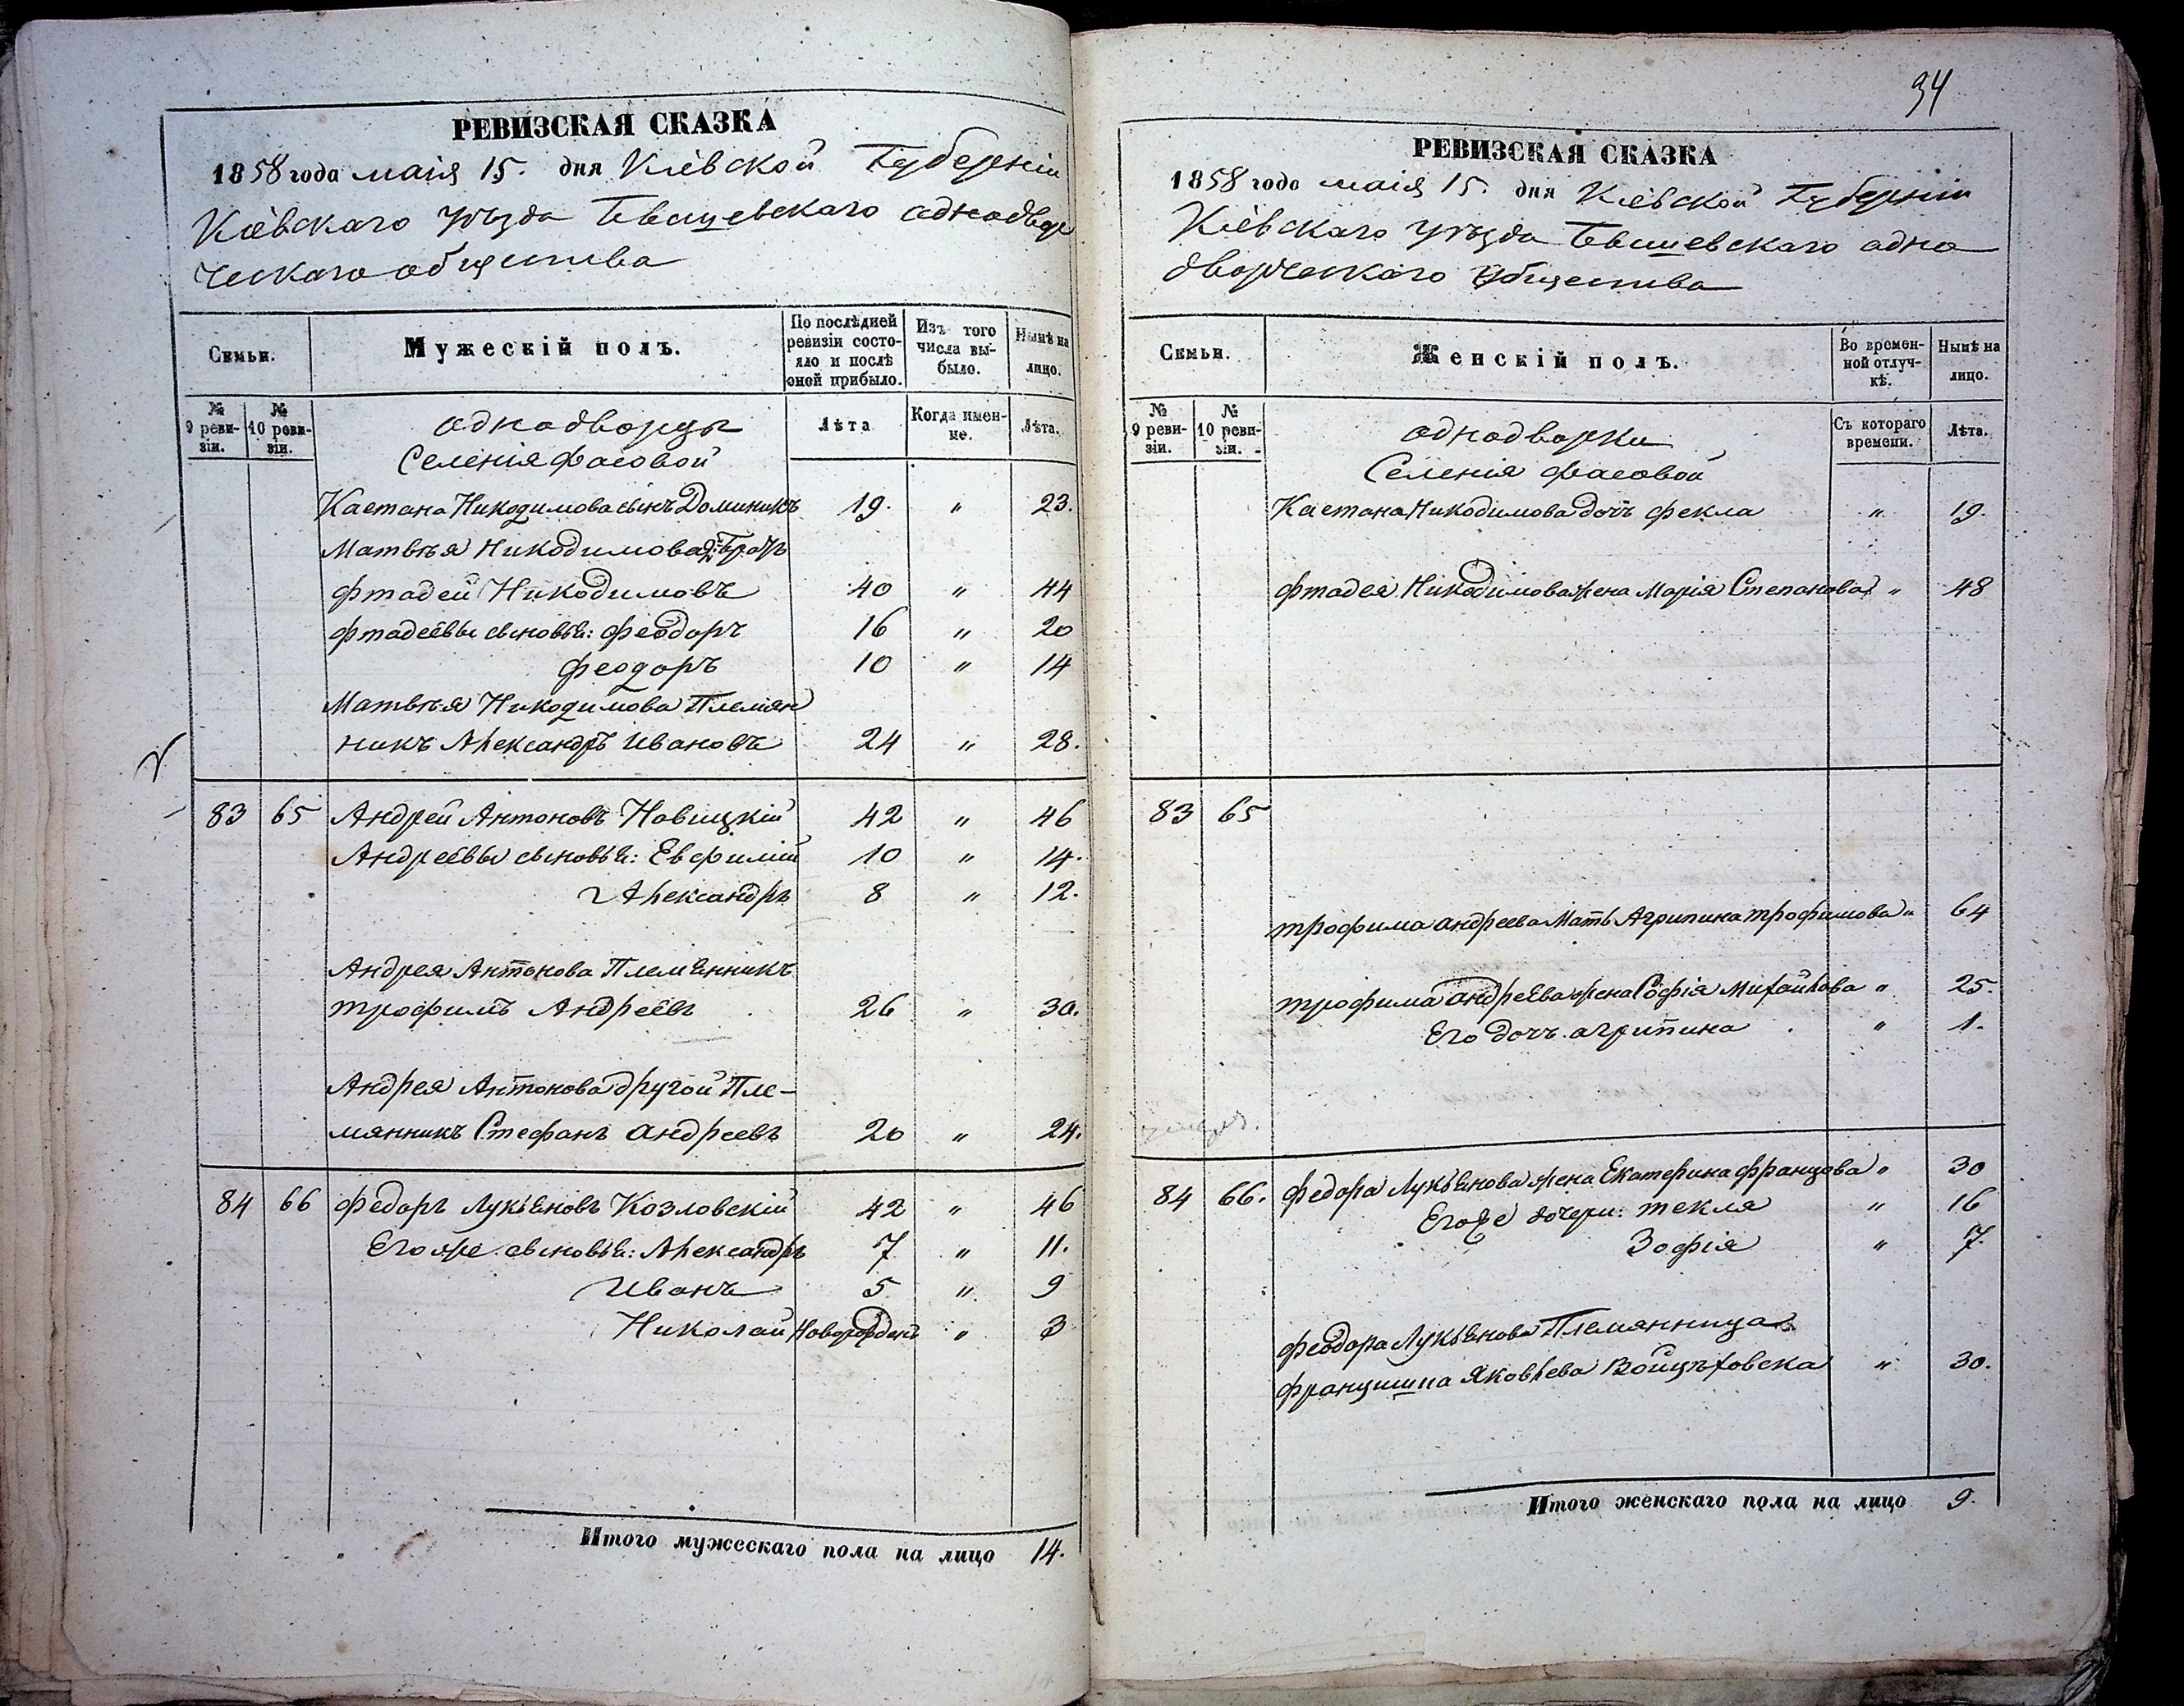 РЕВИЗСКАЯ СКАЗКА
1858 года маія 15. дня Кіевской Губерніи
Кіевскаго уѣзда Бышевскаго аднодвор
ческаго общества
Семьи.
Мужескій полъ.
По послѣдней ревизіи состояло и послѣ оней прибыло.
Изъ того числа выбыло.
Нынѣ на лицо.
№ 9 ревизіи.
№ 10 ревизіи.
аднодворцы
Селенія Фасовой
Лѣта
Когда именне.
Лѣта.
Каетана Никодимова сынъ Доминикъ 19. " 23.
Матвѣя Никодимова
Фтадей Никодимовъ 40 " 44
Фтадеевы сыновья: Феодоръ 16 " 20
Феодоръ 10 " 14
Матвѣя Никодимова Племян
никъ Александръ Ивановъ 24 " 28.
83 65 Андрей Антоновъ Новицкій 42 " 46
Андреевы сыновья: Евфимій 10 " 14.
Александръ 8 " 12.
Андрея Антонова Племянникъ
трофимъ Андреевъ 26 " 30.
Андрея Антонова другой Пле-
мянникъ Стефанъ Андреевъ 20 " 24.
84 66 Федоръ Лукьяновъ Козловскій 42 " 46
Егоже сыновья: Александръ 7 " 11.
Иванъ 5 " 9
Николай Новорожденъ " 3
Итого мужескаго пола на лицо 14.
34
РЕВИЗСКАЯ СКАЗКА
1858 года маія 15. дня Кіевской Губерніи
Кіевскаго уѣзда Бышевскаго адно
дворческаго общества
Семьи.
Женскій полъ.
Во временной отлучкѣ.
Нынѣ на лицо.
№ 9 ревизіи.
№ 10 ревизіи.
однодворки
Селенія Фасовой
Съ котораго времени.
Лѣта.
Каетана Никодимова дочь Фекла " 19.
Фтадея Никодимова жена Марія Степанова " 48
83 65
трофима андреева Мать Агрипина трофимова " 64
трофима андреева жена Софія Михайлова " 25.
Его дочь агрипина " 1.
84 66. Федора Лукьянова жена Екатерина Францова " 30
Егоже дочери: Текля " 16
Зофія " 7.
Феодора Лукьянова Племянница
Францишка Яковлева Войцѣховска " 30.
Итого женскаго пола на лицо 9.